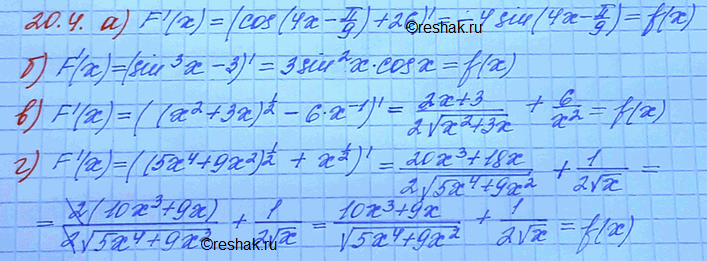 20.4. а) F'(x) = (cos(4x - π/9) + 26)' = -4 sin(4x - π/9) = f(x)
б) F'(x) = (sin³x - 3)' = 3 sin²x · cosx = f(x)
в) F'(x) = ((x² + 3x)^(1/2) - 6·x⁻¹)' = (2x+3)/(2√(x²+3x)) + 6/x² = f(x)
г) F'(x) = ((5x⁴ + 9x²)^(1/2) + x^(1/2))' = (20x³ + 18x)/(2√(5x⁴+9x²)) + 1/(2√x) =
= 2(10x³ + 9x)/(2√(5x⁴+9x²)) + 1/(2√x) = (10x³ + 9x)/√(5x⁴+9x²) + 1/(2√x) = f(x)
©reshak.ru ©reshak.ru